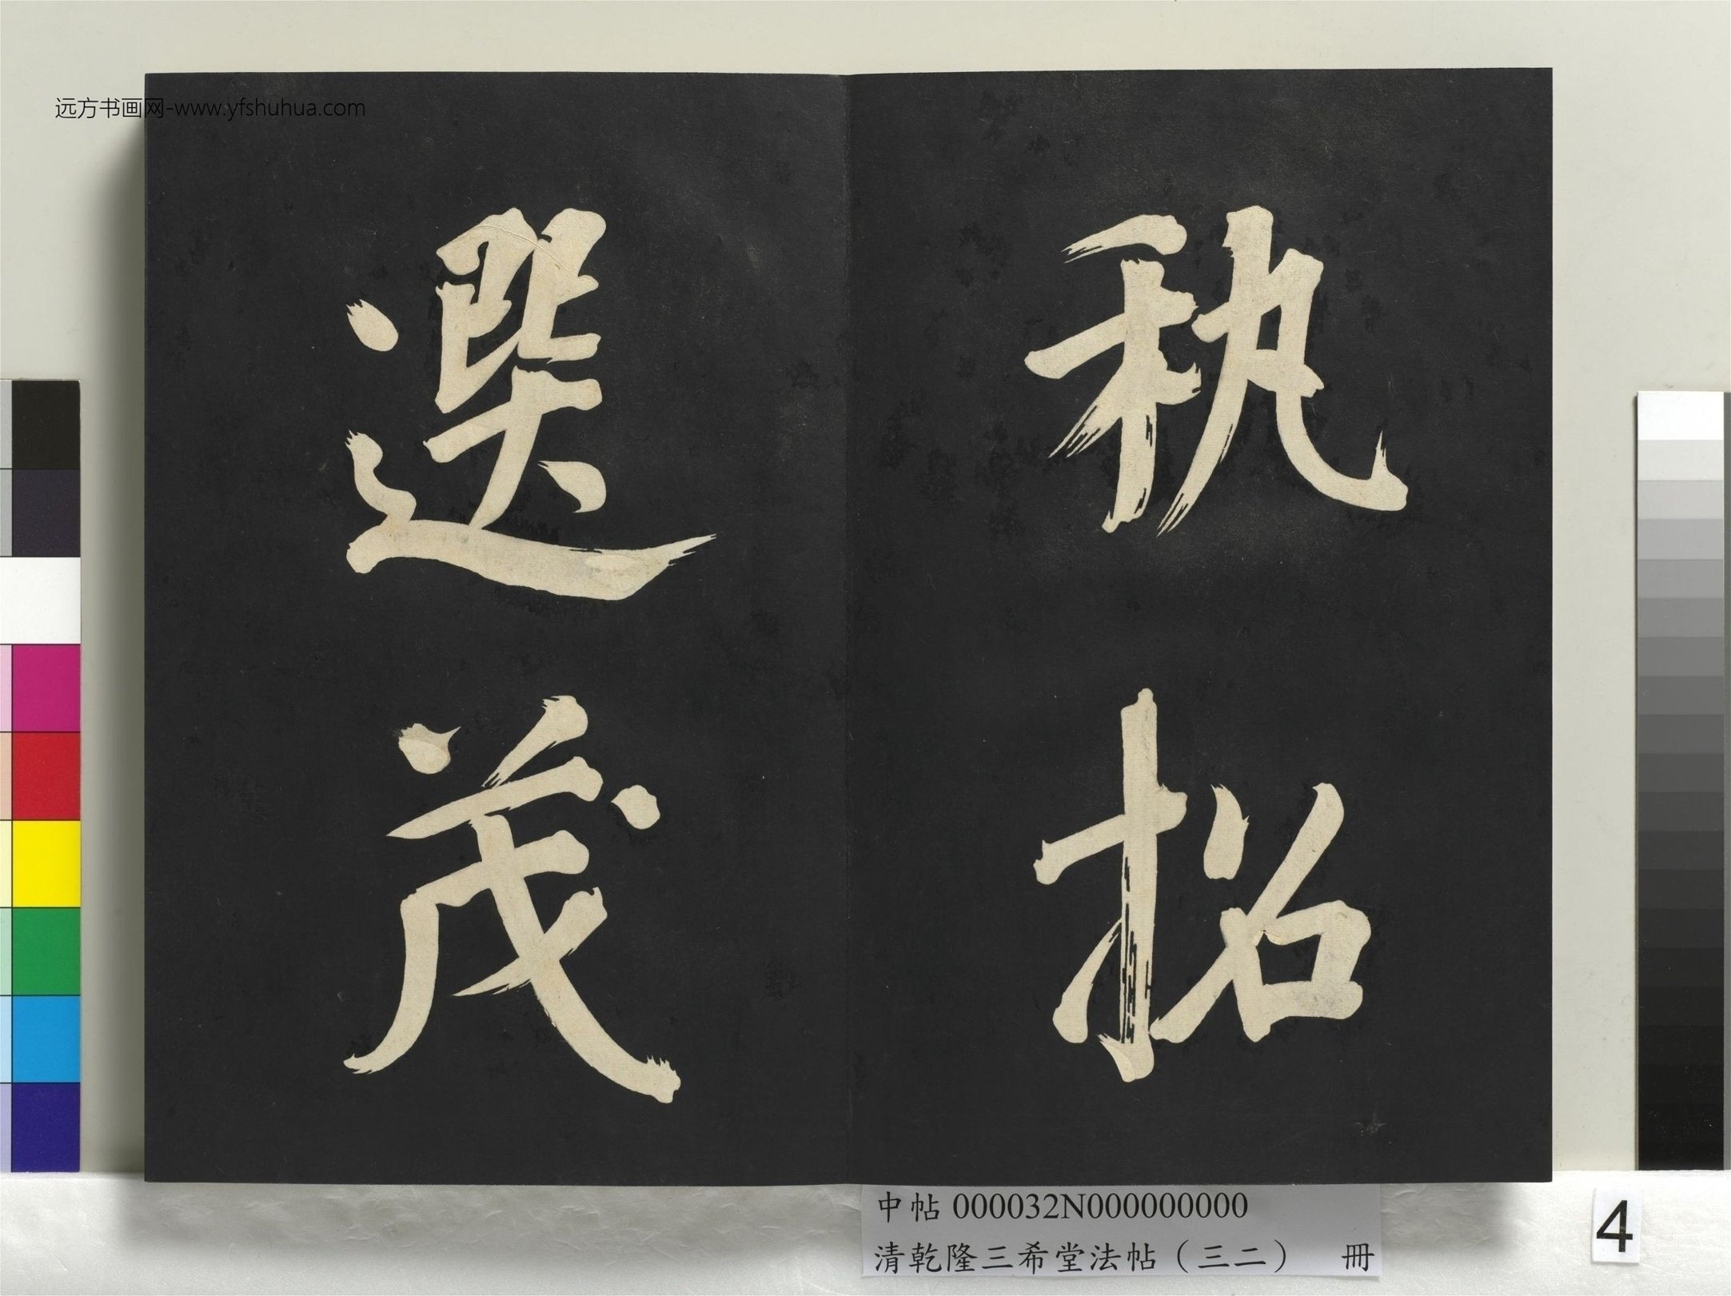 远方书画网-www.yfshuhua.com
秇招
選茂
中帖 000032N000000000
清乾隆三希堂法帖（三二） 冊
4